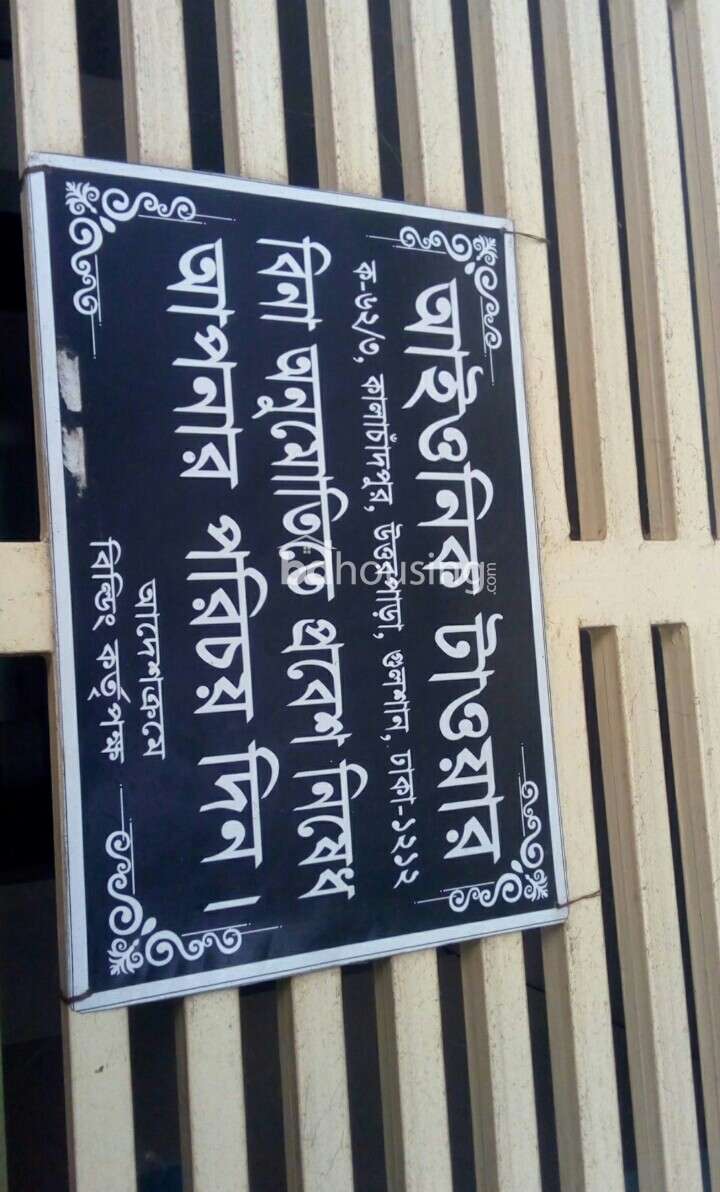 আইওনিক টাওয়ার
ক-৬২/৩, কালাচাঁদপুর, উত্তরপাড়া, গুলশান, ঢাকা-১২১২
বিনা অনুমোতিতে প্রবেশ নিষেধ
আপনার পরিচয় দিন।
আদেশক্রমে
বিল্ডিং কর্তৃপক্ষ
bdhousing.com